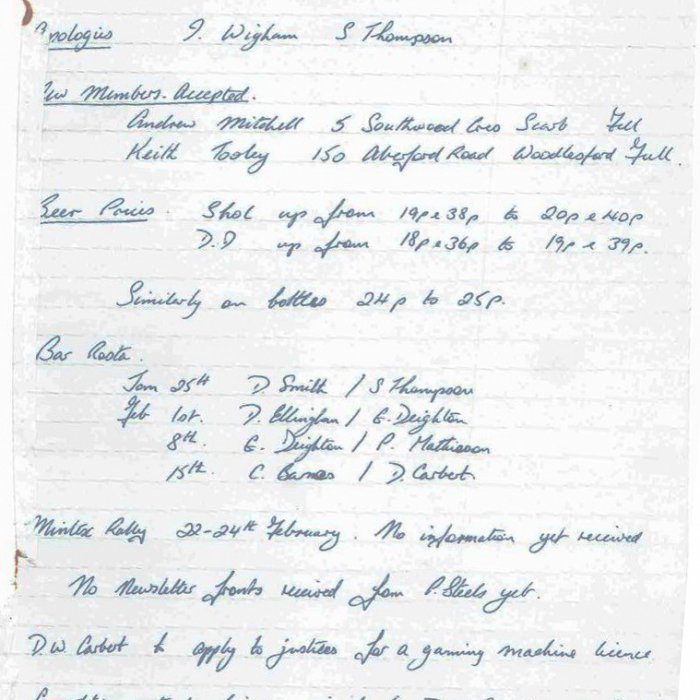 Apologies I. Wigham S Thompson
New Members Accepted.
Andrew Mitchell 5 Southwood Cres Scarb Full
Keith Tooley 150 Aberford Road Woodlesford Full.
Beer Prices. Shol up from 19p & 38p to 20p & 40p
D.D up from 18p & 36p to 19p & 39p.
Similarly on bottles 24p to 25p.
Bar Roota.
Jan 25th D. Smith / S Thompson
Feb 1st. D. Ellingham / G. Deighton
8th. G. Deighton / P. Mathieson
15th. C. Barnes / D. Carbert.
Mintex Rally 22-24th February. No information yet received
No Newsletter fronts received from P. Steels yet.
D.W. Carbert to apply to justices for a gaming machine licence